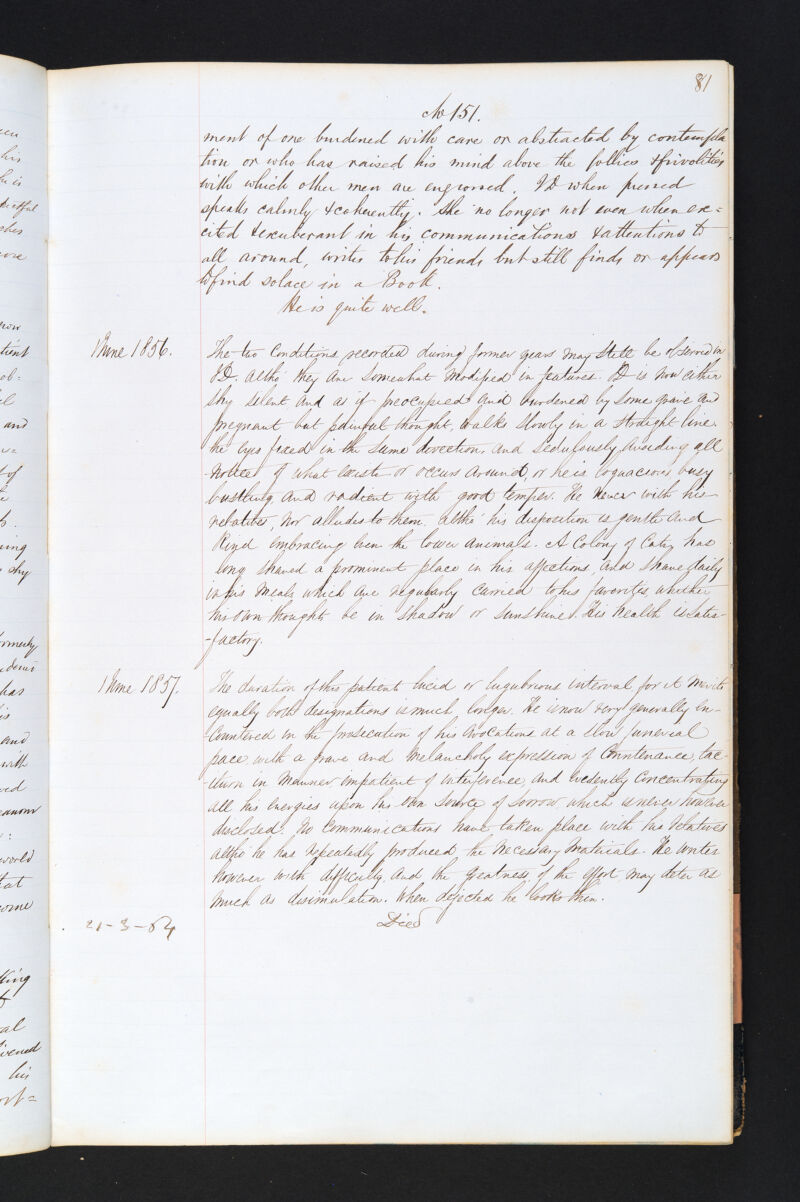 81
No 151.
ment of one burdened with care or abstracted by contempla
tion or who has raised his mind above the follies & frivolities
with which other men are engrossed. JD when pressed
speaks calmly & coherently. He no longer not even when ex=
cited & exuberant in his communications & attentions to
all around, writes to his friends but still finds or appears
to find solace in a Book.
He is quite well.
1 June 1856. The two conditions recorded during former years may still be observed in
JD. altho' they are somewhat modified in features. JD is now either
shy silent and as if preocupied and burdened by some grave and
pregnant but painful thought, walks slowly in a straight line
the eyes fixed in the same direction, and sedulously avoiding all
notice of what exists or occurs around, or he is loquacious busy
bustling and radient with good temper. He never with his
relatives, nor alludes to them, altho' his disposition is gentle and
kind embracing even the lower animals. A Colony of Cats, has
long shared a prominent place in his affections, and share daily
in his meals which are regularly carried to his favorites, whether
his own thoughts be in shadow or sunshine. His health is satis-
-factory.
1 June 1857. The duration of this patient lucid or lugubrious interval for it merits
equally both designations is much longer. He is now very generally in-
-countered in the prosecution of his avocations at a slow funereal
pace with a grave and melancholy expression of Countenance, tac-
-iturn in manner, impatient of interference, and evidently concentrating
all his energies upon his own source of sorrow which is never however
disclosed. No communications have taken place with his relatives
altho' he has repeatedly produced the necessary materials. He writes
however with difficulty, and the greatness of the effort may deter as
much as disimulation. When dejected he looks thin.
21-3-64 Died